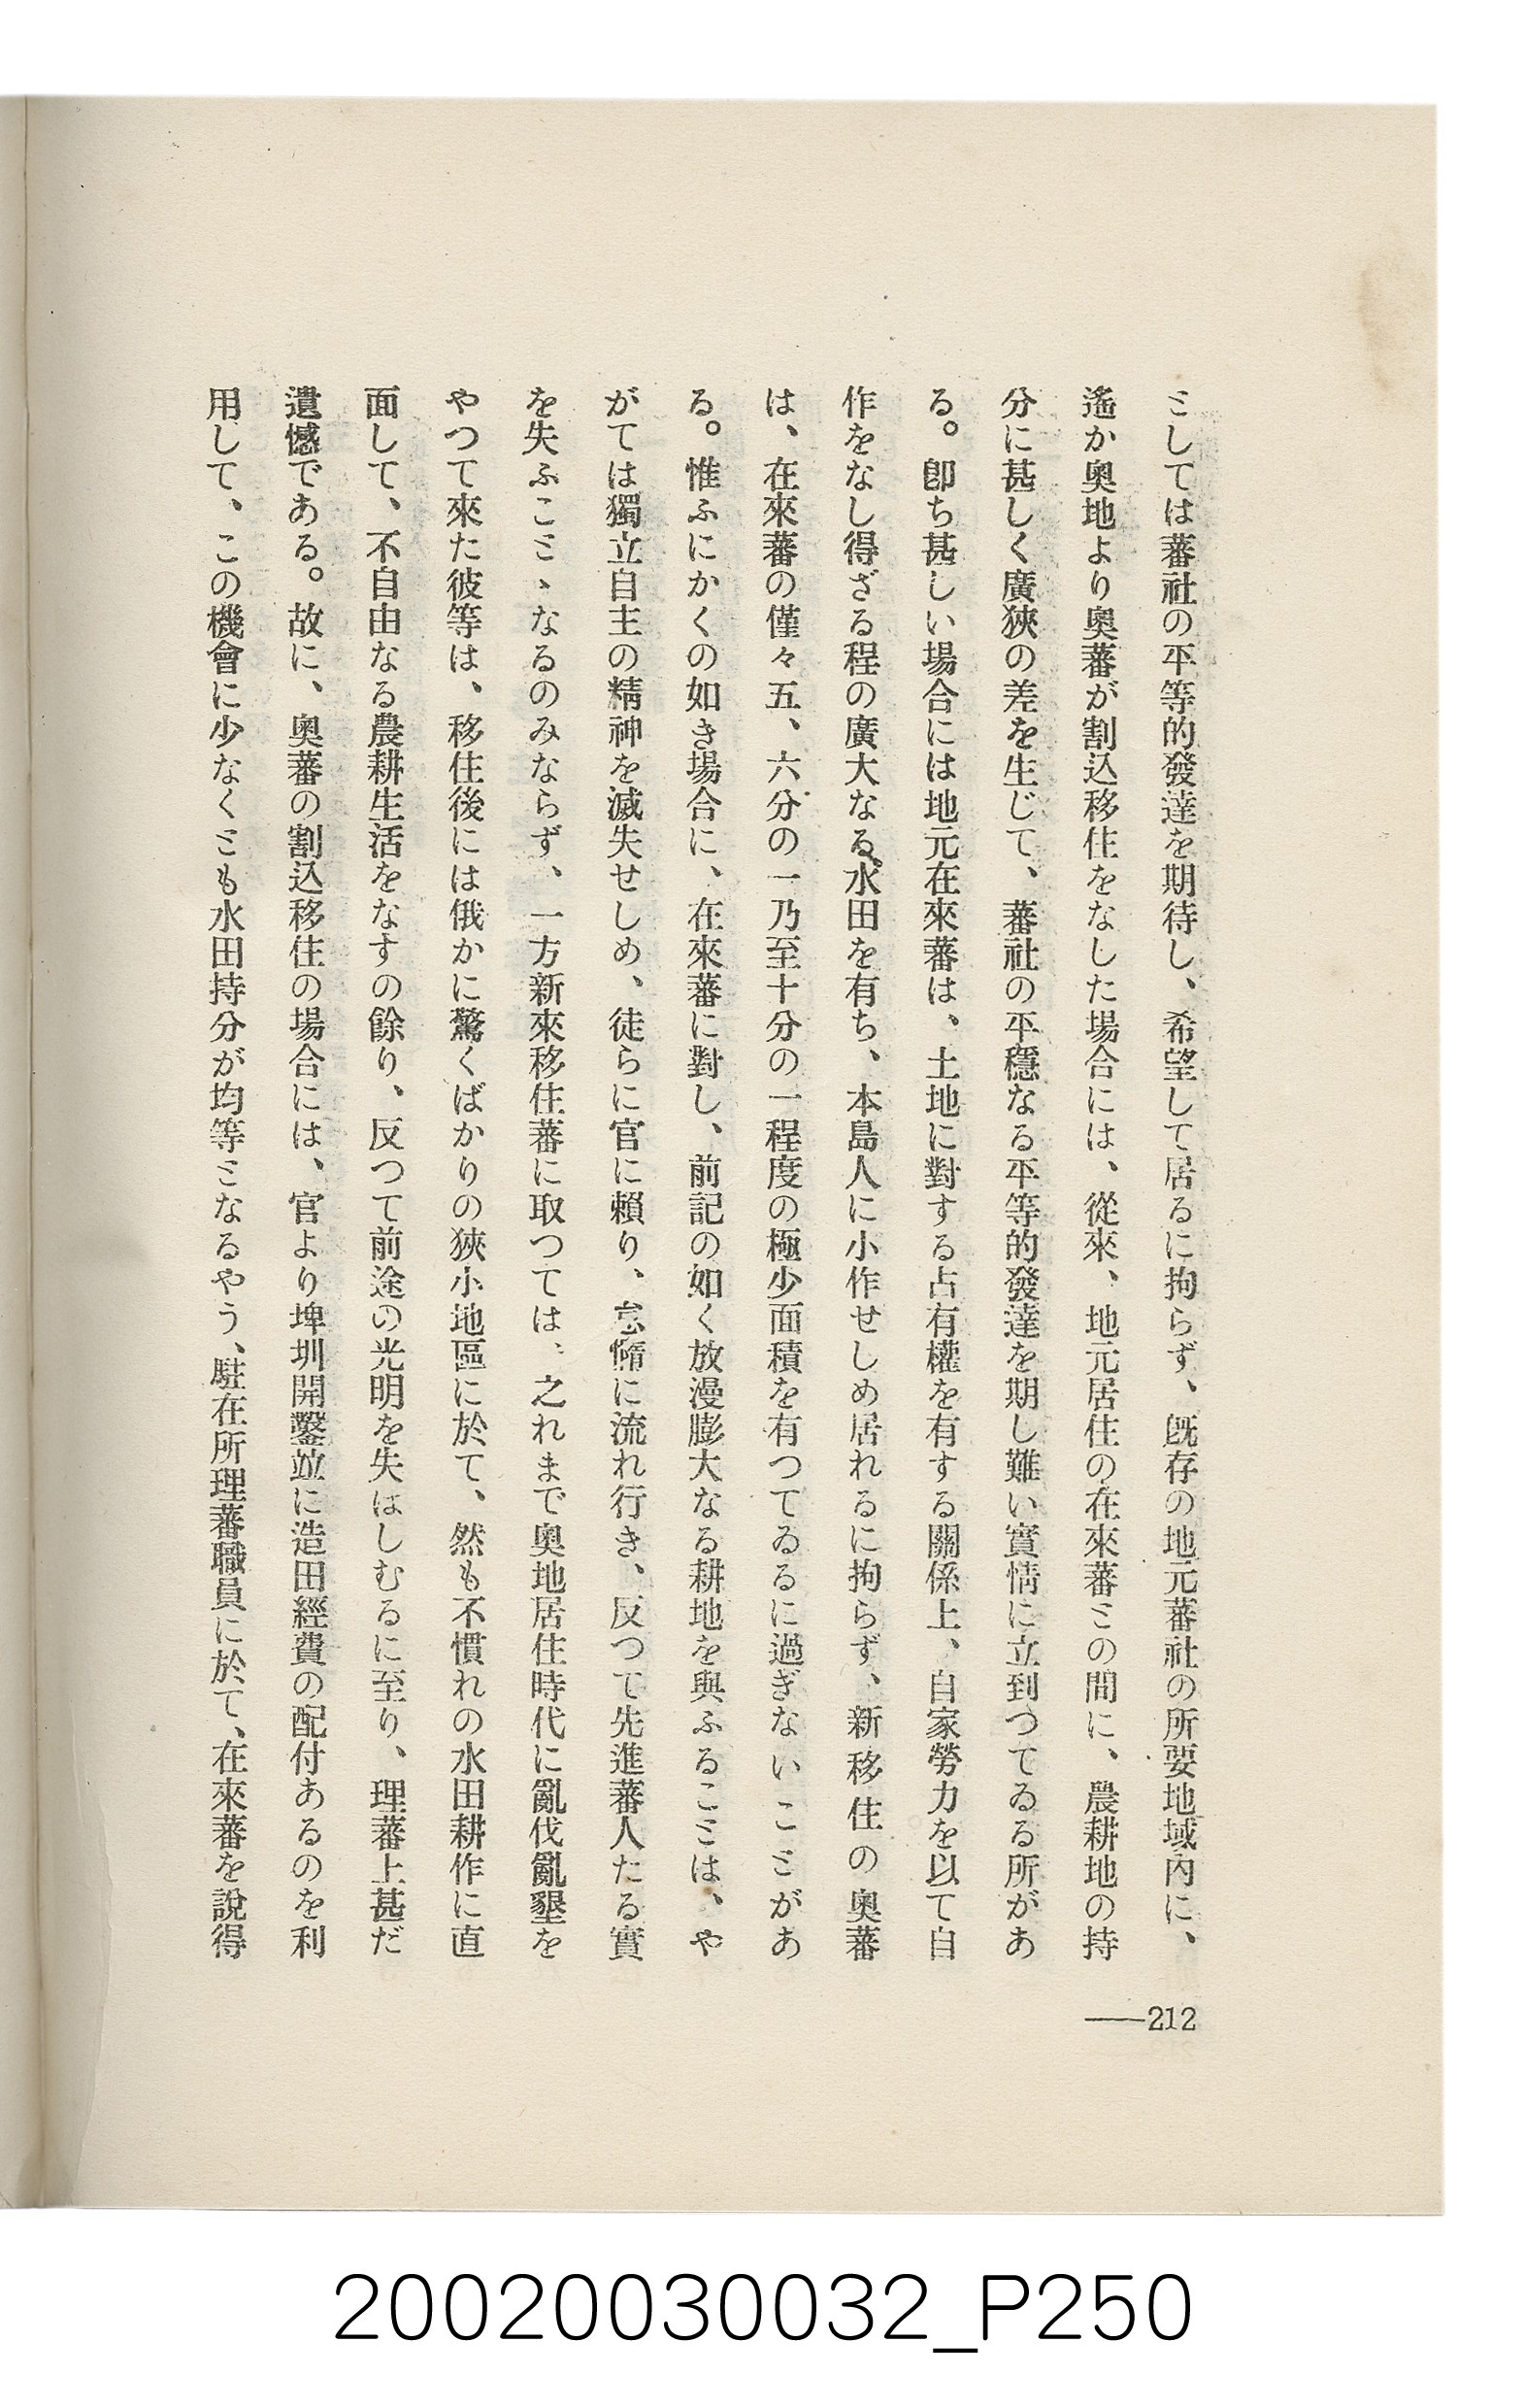 としては蕃社の平等的發達を期待し、希望して居るに拘らず、既存の地元蕃社の所要地域内に、
遙か奥地より奥蕃が割込移住をなした場合には、從來、地元居住の在來蕃との間に、農耕地の持
分に甚しく廣狹の差を生じて、蕃社の平穩なる平等的發達を期し難い實情に立到つてゐる所があ
る。卽ち甚しい場合には地元在來蕃は、土地に對する占有權を有する關係上、自家勞力を以て自
作をなし得ざる程の廣大なる水田を有ち、本島人に小作せしめ居れるに拘らず、新移住の奥蕃
は、在來蕃の僅々五、六分の一乃至十分の一程度の極少面積を有つてゐるに過ぎないことがあ
る。惟ふにかくの如き場合に、在來蕃に對し、前記の如く放漫膨大なる耕地を與ふることは、や
がては獨立自主の精神を滅失せしめ、徒らに官に賴り、怠惰に流れ行き、反つて先進蕃人たる實
を失ふことゝなるのみならず、一方新來移住蕃に取つては、之れまで奥地居住時代に亂伐亂墾を
やつて來た彼等は、移住後には俄かに驚くばかりの狹小地區に於て、然も不慣れの水田耕作に直
面して、不自由なる農耕生活をなすの餘り、反つて前途の光明を失はしむるに至り、理蕃上甚だ
遺憾である。故に、奥蕃の割込移住の場合には、官より埤圳開鑿竝に造田經費の配付あるのを利
用して、この機會に少なくとも水田持分が均等となるやう、駐在所理蕃職員に於て、在來蕃を說得
——212
20020030032_P250